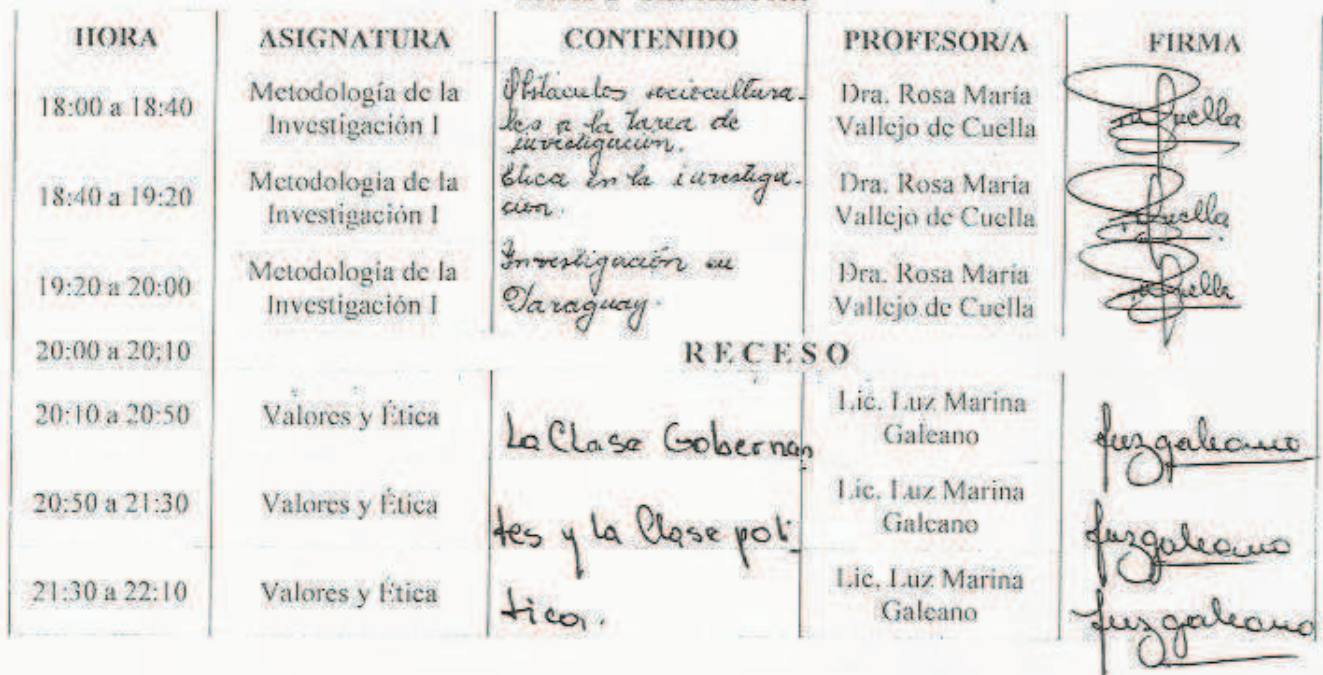 HORA ASIGNATURA CONTENIDO PROFESOR/A FIRMA
18:00 a 18:40 Metodología de la Investigación I Obstáculos sociocultura- Dra. Rosa María Vallejo de Cuella
les a la tarea de
investigación.
18:40 a 19:20 Metodología de la Investigación I Ética en la investiga- Dra. Rosa María Vallejo de Cuella
ción.
19:20 a 20:00 Metodología de la Investigación I Investigación en Dra. Rosa María Vallejo de Cuella
Paraguay.
20:00 a 20:10 RECESO
20:10 a 20:50 Valores y Ética La Clase Gobernan Lic. Luz Marina Galeano luzgaleano
20:50 a 21:30 Valores y Ética tes y la Clase polí- Lic. Luz Marina Galeano luzgaleano
21:30 a 22:10 Valores y Ética tica. Lic. Luz Marina Galeano luzgaleano